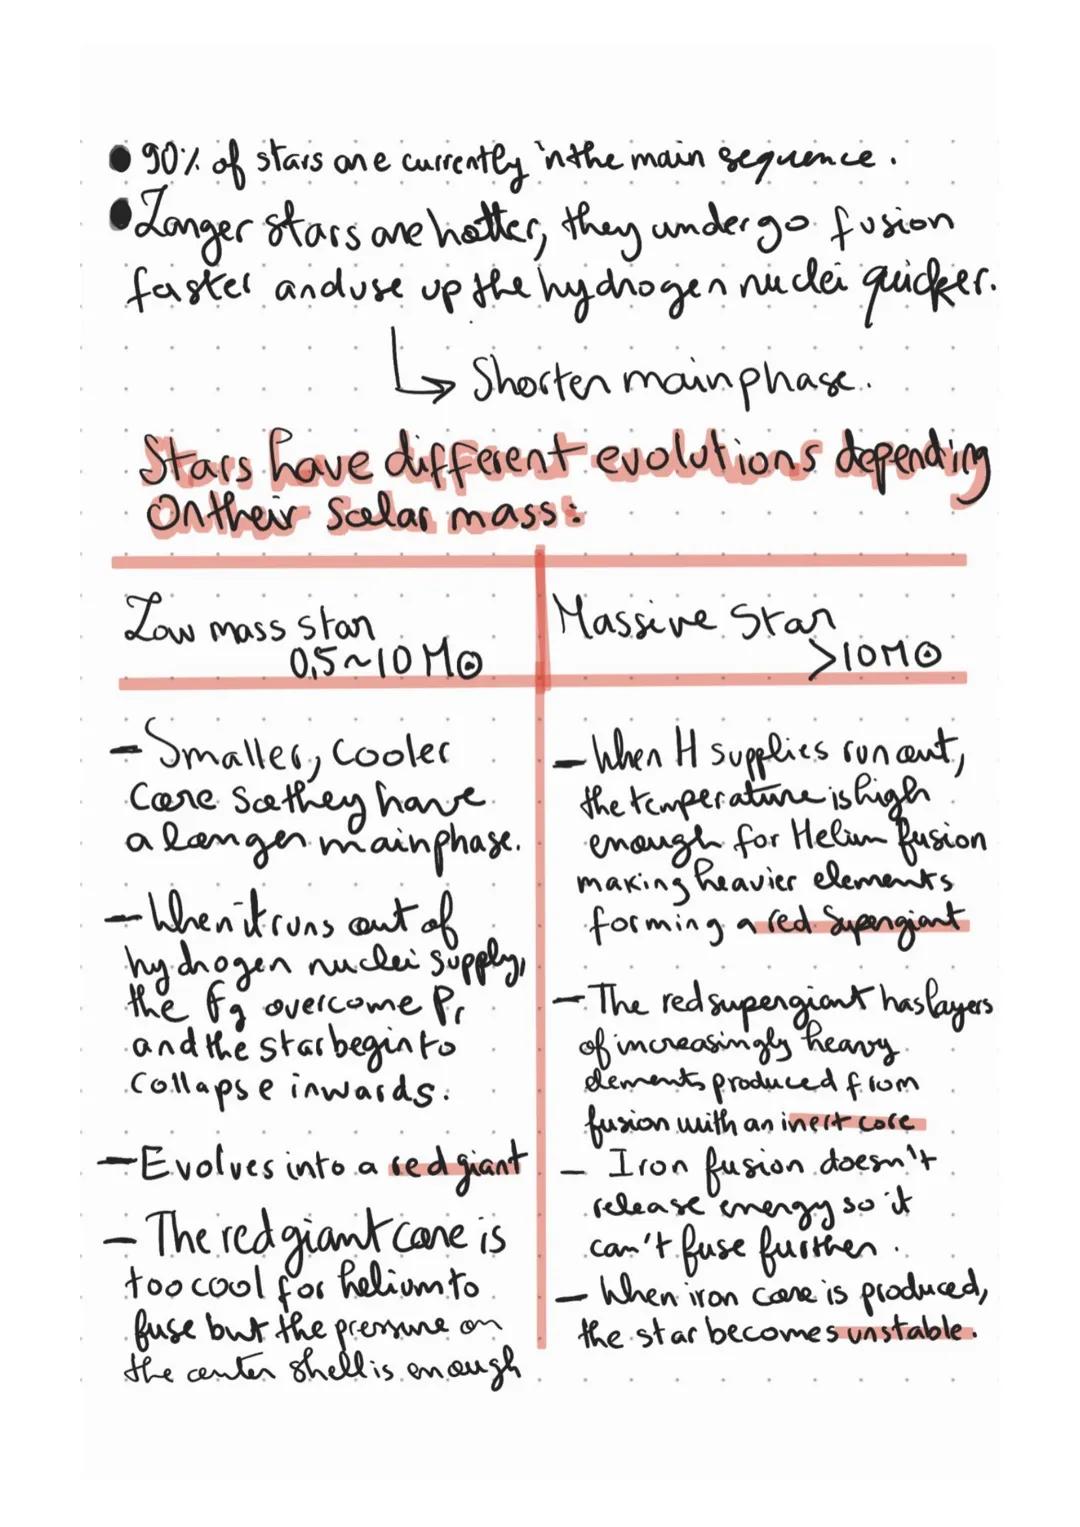 ● 90% of stars are currently in the main sequence.
● Larger stars are hotter, they undergo fusion
faster and use up the hydrogen nuclei quicker.
↳ Shorter main phase.
Stars have different evolutions depending
On their solar mass:
Low mass star
0,5~10 M⊙
- Smaller, cooler
Core so they have
a longer main phase.
- When it runs out of
hydrogen nuclei supply,
the Fg overcome Pr
and the star begin to
collapse inwards.
- Evolves into a red giant
- The red giant core is
too cool for helium to
fuse but the pressure on
the outer shell is enough
Massive Star
>10M⊙
- When H supplies run out,
the temperature is high
enough for Helium fusion
making heavier elements
forming a red Supergiant
- The red supergiant has layers
of increasingly heavy
elements produced from
fusion with an inert core
- Iron fusion doesn't
release energy so it
can't fuse further.
- When iron core is produced,
the star becomes unstable.